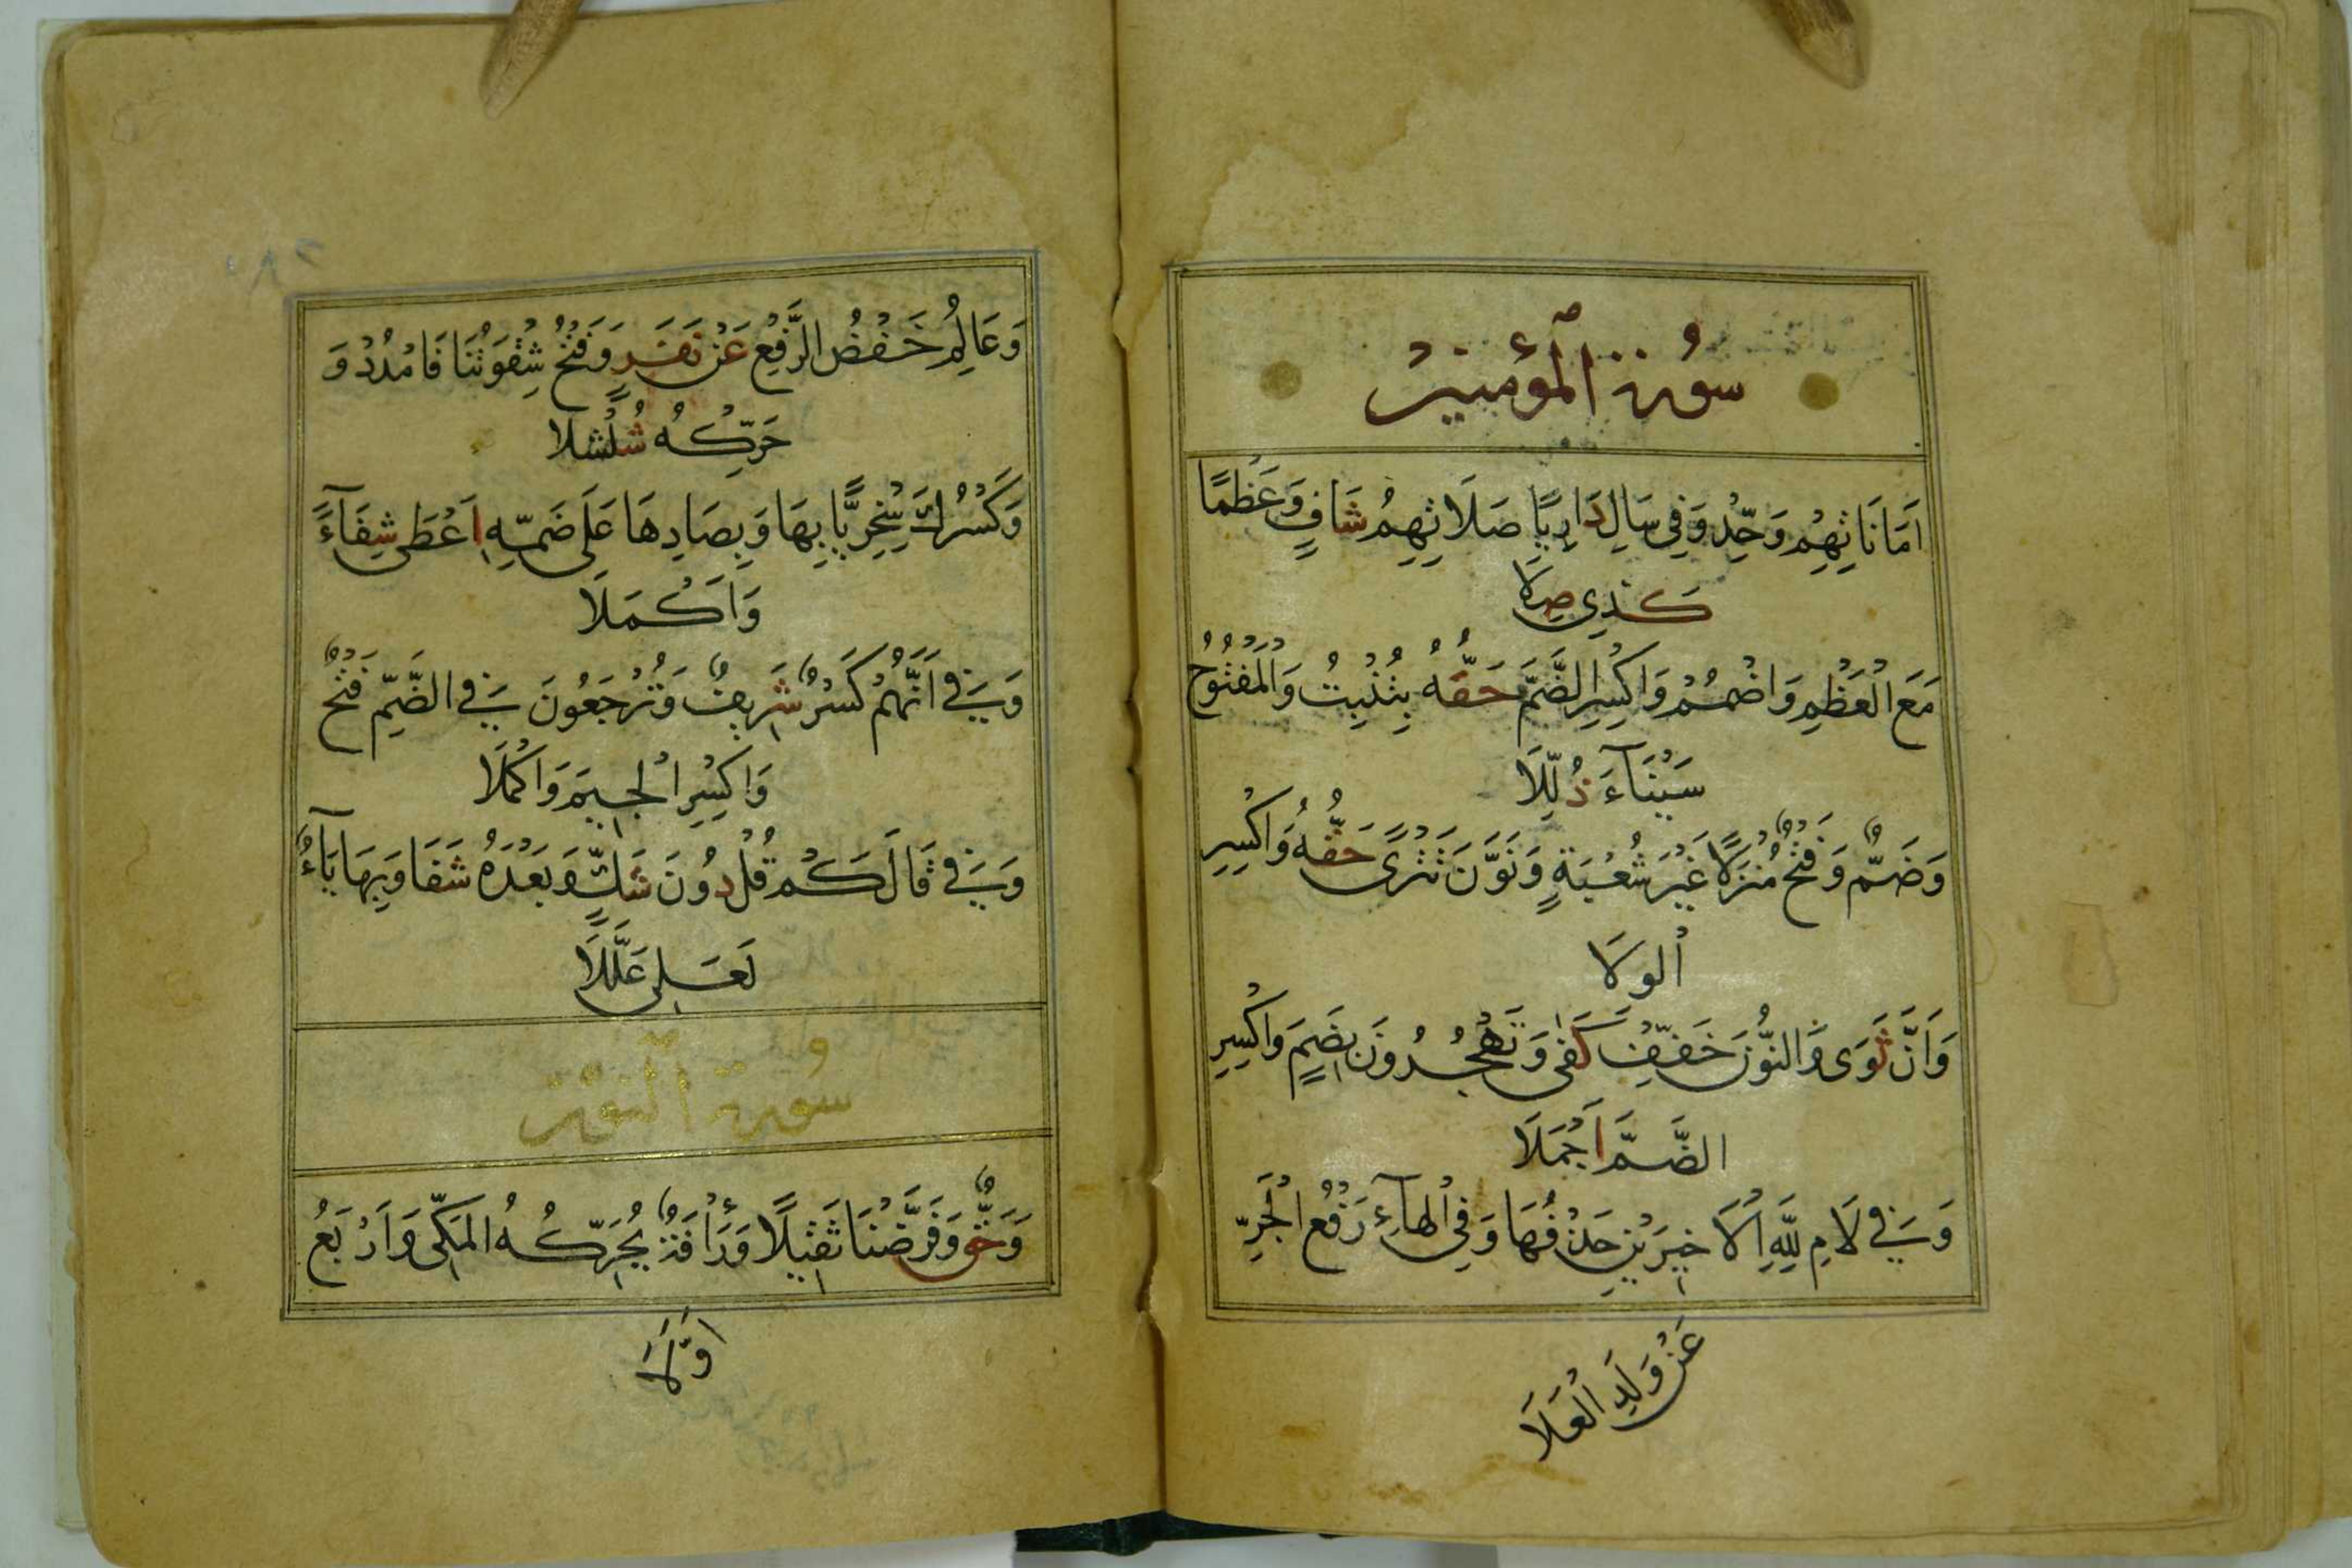 سُورة المؤمنين
اَمَانَاتِهِمْ وَحِّدْ وَفِي سَالِ دَارِيًا صَلَاتِهِمُ شَافٍ وَعَظْمًا
كَذِي صِلَا
مَعَ الْعَظْمِ وَاضْمُمْ وَاكْسِرِ الضَّمَّ حَقُّهُ بِتُنْبِتُ وَالْمَفْتُوحُ
سَيْنَآءَ ذُلِّلَا
وَضَمٌّ وَفَتْحٌ مُنْزَلًا غَيْرَ شُعْبَةٍ وَنَوَّنَ تَتْرًى حَقُّهُ وَاكْسِرِ
الْوِلَا
وَاَنَّ ثَوَى وَالنُّونَ خَفِّفْ كَفَى وَتَهْجُرُونَ بِضَمٍّ وَاكْسِرِ
الضَّمَّ اَجْمَلَا
وَفِي لَامِ لِلّٰهِ الْاَخِيرَيْنِ حَذْفُهَا وَفِي الْهَآءِ رَفْعُ الْجَرِّ
عَنْ وَلَدِ الْعَلَا
وَعَالِمُ خَفْضُ الرَّفْعِ عَنْ نَفَرٍ وَفَتْحُ شِقْوَتُنَا فَامْدُدْ وَ
حَرِّكْهُ شُلْشُلَا
وَكَسْرُكَ سِخْرِيًّا بِهَا وَبِصَادِهَا عَلَى ضَمِّهِ اَعْطَى شِفَآءً
وَاَكْمَلَا
وَفِي اَنَّهُمْ كَسْرٌ شَرِيفٌ وَتُرْجَعُونَ فِي الضَّمِّ فَتْحٌ
وَاكْسِرِ الْجِيمَ وَاكْمُلَا
وَفِي قَالَ كَمْ قُلْ دُونَ شَكٍّ وَبَعْدَهُ شَفَا وَبِهَا يَآءٌ
لَعَلِّي عُلِّلَا
سُورة النُّور
وَحَقٌّ وَفَرَّضْنَا ثَقِيلًا وَرَأْفَةٌ يُحَرِّكُهُ الْمَكِّي وَاَرْبَعُ
اَوَّلَا